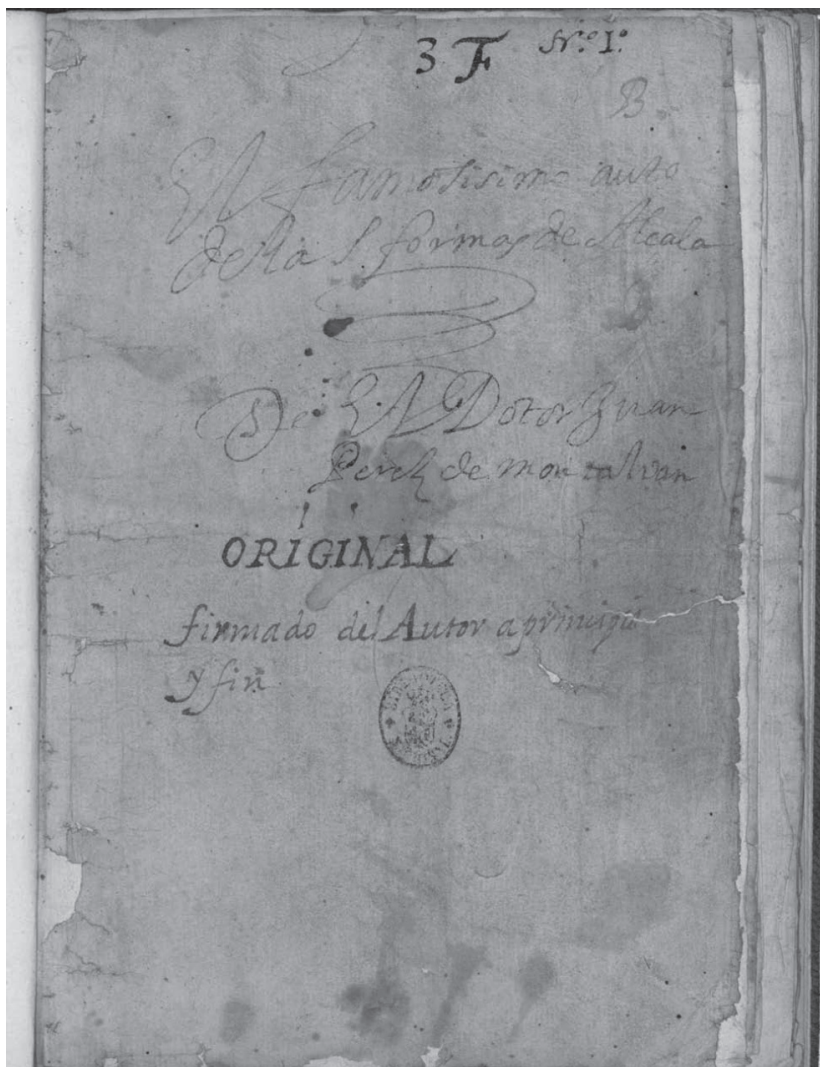 3 F Nº. Iº.
B.
El famosisimo auto
de las formas de Alcala
De El Dotor Juan
Perez de montalvan
ORIGINAL
firmado del Autor a principio
y fin